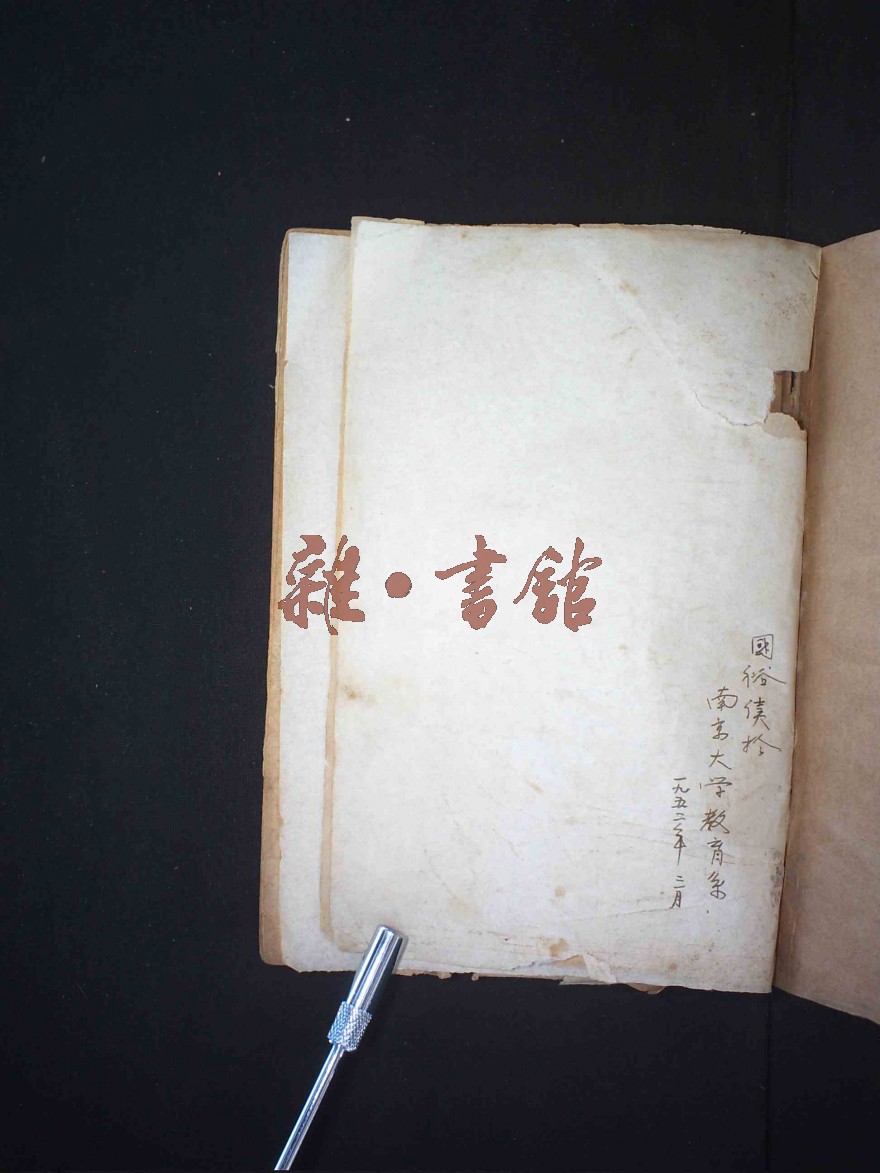 國裕續於
南京大学教育系.
一九五二年三月
雜·書館